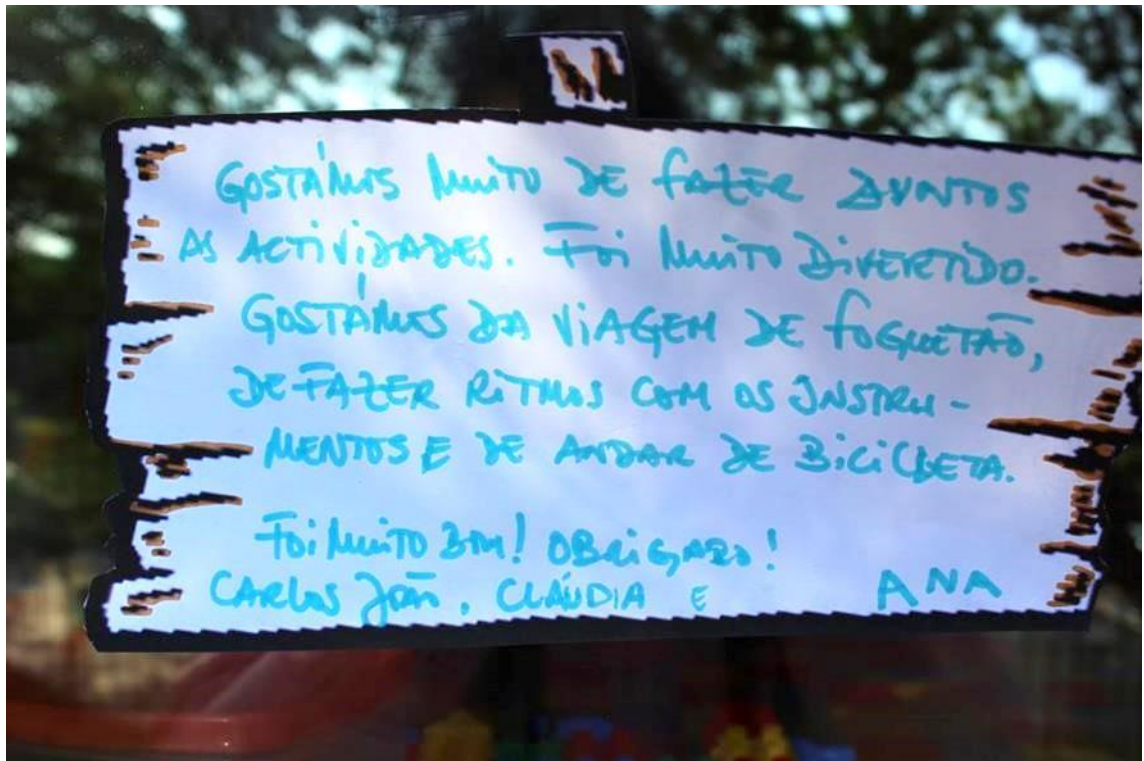 GOSTÁMOS MUITO DE FAZER JUNTOS
AS ACTIVIDADES. FOI MUITO DIVERTIDO.
GOSTÁMOS DA VIAGEM DE FOGUETÃO,
DE FAZER RITMOS COM OS INSTRU-
MENTOS E DE ANDAR DE BICICLETA.
FOI MUITO BOM! OBRIGADO!
CARLOS JOÃO, CLÁUDIA E ANA